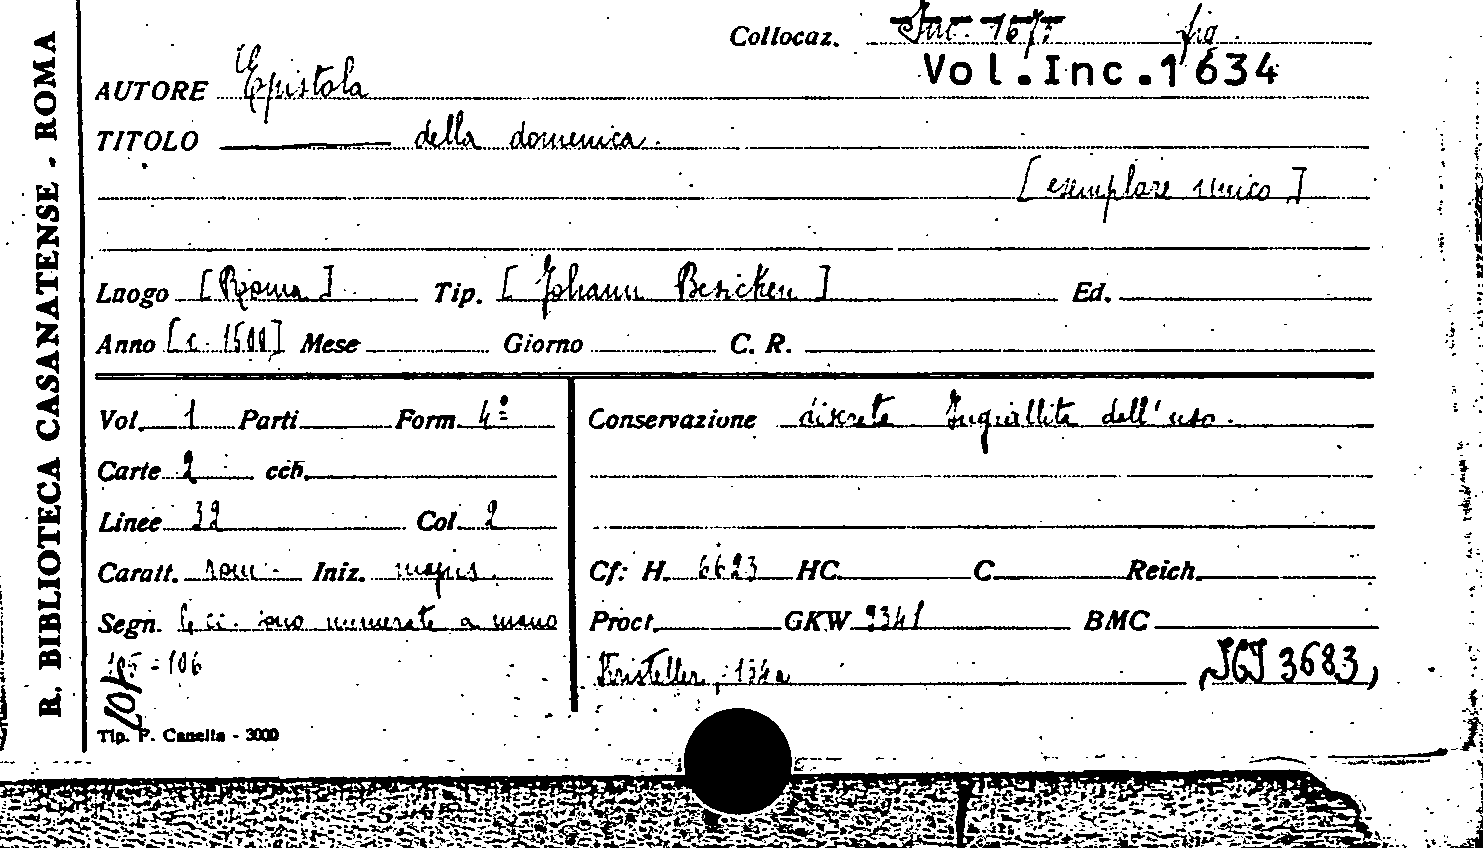 R. BIBLIOTECA CASANATENSE - ROMA
Collocaz. Inc. 1677 fig.
Vol.Inc.1634
AUTORE Epistola
TITOLO ——— della domenica.
[esemplare unico]
Luogo [Roma] Tip. [Johann Besicken] Ed.
Anno [c. 1500] Mese Giorno C. R.
Vol. 1 Parti Form. 4º Conservazione discreta Ingiallita dall'uso.
Carte 2 cch.
Linee 32 Col. 2
Caratt. rom. Iniz. maius. Cf: H. 6623 HC. C. Reich.
Segn. Le cc. sono numerate a mano Proct. GKW 9341 BMC
105 - 106 Kristeller, 134a IGI 3683
Tip. P. Canella - 3000